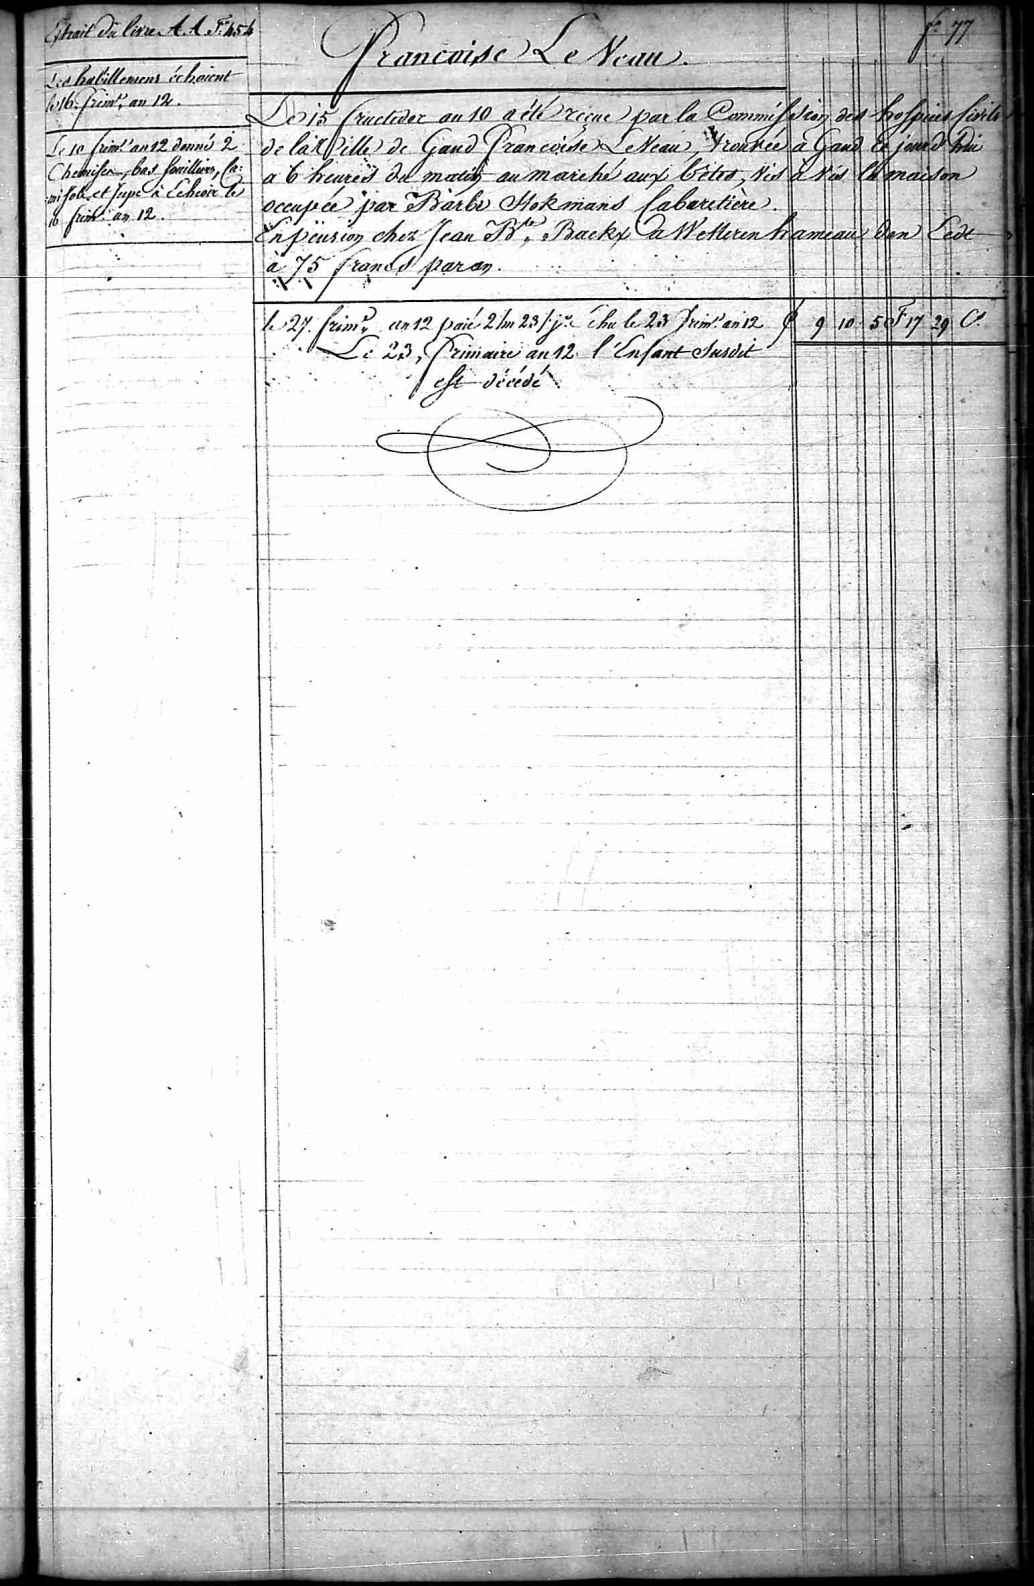 Extrait du livre A A. F° 454
f° 77
Françoise Le Veau.
Les habillemens échoient
le 16. frimre an 12.
Le 10 frimre an 12 donné 2
Chemises, bas, souilliers, Ca-
misole, et Jupe à Echeoir le
16 frimre an 12.
Le 15 fructidor an 10 a été reçue par la Commission des hospices Civils
de la Ville de Gand Françoise Le Veau, trouvée à Gand ce jourd'hui
a 6 heures du matin au marché aux bêtes, vis à vis la maison
occupée par Barbe Stokmans Cabaretière.
En pension chez Jean Bte Backx a Wetteren hameau den Ede
à 75 francs par an.
le 27. frimre an 12 paié 2/m 23/jrs échu le 23 frimre an 12 £ 9 10 5 F 17 29 Cs
Le 23, frimaire an 12 l'Enfant Susdit
est décédé